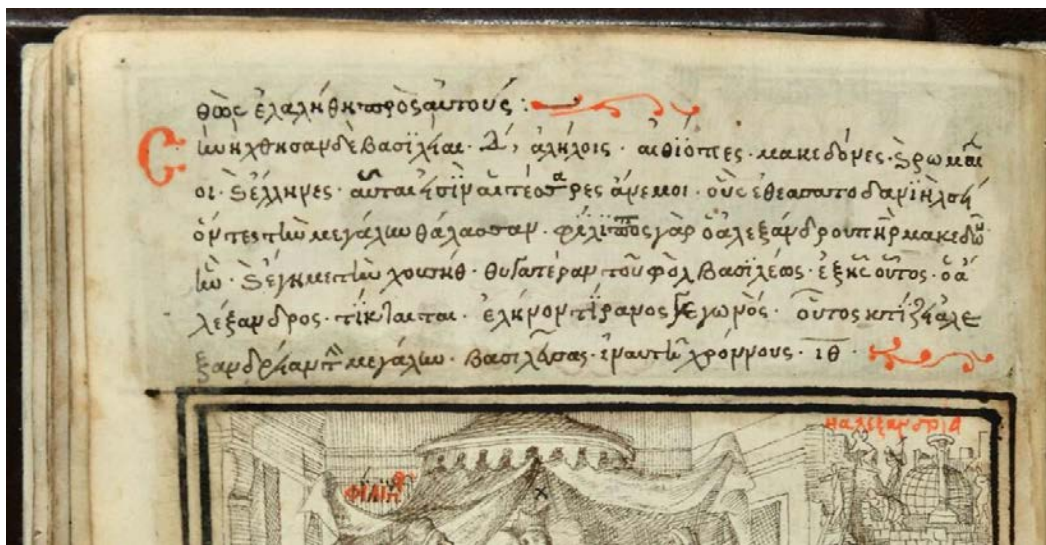 θῶς ἐλαλήθη πρὸς αὐτούς :
Συνήχθησαν δὲ βασϊλεῖαι · Δ, ἀλήλοις · αἰθΐοπες · μακεδόνες · ϗ ρωμαῖ
οι · ϗ ἕλληνες · αὗται εἰσῒν αἱ τέσσαρες ἄνεμοι · οὓς ἐθεάσατο δανϊὴλ
τὴν μεγάλην θάλασσαν · φίλϊππος γὰρ ὁ ἀλεξάνδρου πῆρ μακεδὼν
ἦν · ϗ ἔγημε τὴν χουσὴθ · θυγατέραν τοῦ φὸλ βασϊλέως · ἐξ ἧς οὗτος · ὁ ἀ
λέξανδρος · τίκτεται · ἑλήνον τϊρανος γεγωνὸς · οὗτος κτίζει ἀλε
ξανδρίαν τὴν μεγάλην · βασϊλεύσας · ἐν αυτῆ χρόννους · ιθ ·
ΦΙΛΙΠ
Η αλεξανδρία